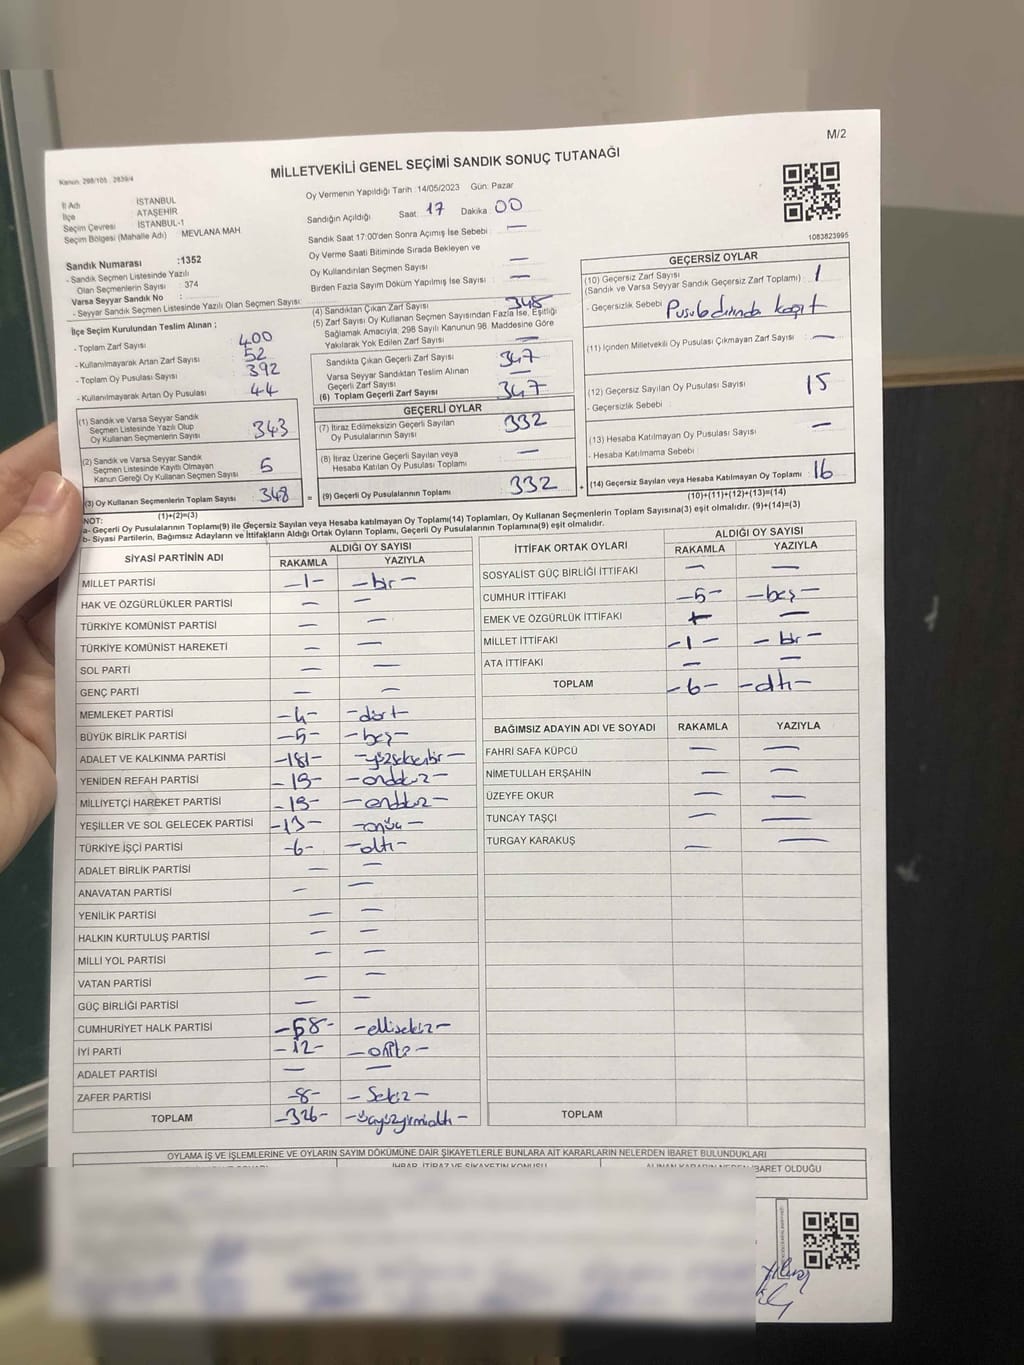 M/2
Kanun: 298/105 : 2839/4
MİLLETVEKİLİ GENEL SEÇİMİ SANDIK SONUÇ TUTANAĞI
1083823995
İl Adı : İSTANBUL
İlçe : ATAŞEHİR
Seçim Çevresi : İSTANBUL-1
Seçim Bölgesi (Mahalle Adı) : MEVLANA MAH
Sandık Numarası :1352
- Sandık Seçmen Listesinde Yazılı
Olan Seçmenlerin Sayısı : 374
Varsa Seyyar Sandık No :
- Seyyar Sandık Seçmen Listesinde Yazılı Olan Seçmen Sayısı:
İlçe Seçim Kurulundan Teslim Alınan ;
- Toplam Zarf Sayısı : 400
- Kullanılmayarak Artan Zarf Sayısı : 52
- Toplam Oy Pusulası Sayısı : 392
- Kullanılmayarak Artan Oy Pusulası : 44
(1) Sandık ve Varsa Seyyar Sandık
Seçmen Listesinde Yazılı Olup
Oy Kullanan Seçmenlerin Sayısı : 343
(2) Sandık ve Varsa Seyyar Sandık
Seçmen Listesinde Kayıtlı Olmayan
Kanun Gereği Oy Kullanan Seçmen Sayısı : 5
(3) Oy Kullanan Seçmenlerin Toplam Sayısı : 348
(1)+(2)=(3)
Oy Vermenin Yapıldığı Tarih :14/05/2023 Gün: Pazar
Sandığın Açıldığı Saat: 17 Dakika: 00
Sandık Saat 17:00'den Sonra Açımış İse Sebebi : —
Oy Verme Saati Bitiminde Sırada Bekleyen ve
Oy Kullandırılan Seçmen Sayısı : —
Birden Fazla Sayım Döküm Yapılmış İse Sayısı : —
(4) Sandıktan Çıkan Zarf Sayısı : 348
(5) Zarf Sayısı Oy Kullanan Seçmen Sayısından Fazla İse, Eşitliği
Sağlamak Amacıyla, 298 Sayılı Kanunun 98. Maddesine Göre
Yakılarak Yok Edilen Zarf Sayısı : —
Sandıkta Çıkan Geçerli Zarf Sayısı : 347
Varsa Seyyar Sandıktan Teslim Alınan
Geçerli Zarf Sayısı : —
(6) Toplam Geçerli Zarf Sayısı : 347
GEÇERLİ OYLAR
(7) İtiraz Edilmeksizin Geçerli Sayılan
Oy Pusulalarının Sayısı : 332
(8) İtiraz Üzerine Geçerli Sayılan veya
Hesaba Katılan Oy Pusulası Toplamı : —
= (9) Geçerli Oy Pusulalarının Toplamı : 332 +
GEÇERSİZ OYLAR
(10) Geçersiz Zarf Sayısı : 1
(Sandık ve Varsa Seyyar Sandık Geçersiz Zarf Toplamı)
- Geçersizlik Sebebi : Pusula dışında kağıt
(11) İçinden Milletvekili Oy Pusulası Çıkmayan Zarf Sayısı : —
(12) Geçersiz Sayılan Oy Pusulası Sayısı : 15
- Geçersizlik Sebebi :
(13) Hesaba Katılmayan Oy Pusulası Sayısı : —
- Hesaba Katılmama Sebebi :
(14) Geçersiz Sayılan veya Hesaba Katılmayan Oy Toplamı : 16
(10)+(11)+(12)+(13)=(14)
NOT:
a- Geçerli Oy Pusulalarının Toplamı(9) ile Geçersiz Sayılan veya Hesaba katılmayan Oy Toplamı(14) Toplamları, Oy Kullanan Seçmenlerin Toplam Sayısına(3) eşit olmalıdır. (9)+(14)=(3)
b- Siyasi Partilerin, Bağımsız Adayların ve İttifakların Aldığı Ortak Oyların Toplamı, Geçerli Oy Pusulalarının Toplamına(9) eşit olmalıdır.
SİYASİ PARTİNİN ADI ALDIĞI OY SAYISI
RAKAMLA YAZIYLA
MİLLET PARTİSİ -1- -bir-
HAK VE ÖZGÜRLÜKLER PARTİSİ — —
TÜRKİYE KOMÜNİST PARTİSİ — —
TÜRKİYE KOMÜNİST HAREKETİ — —
SOL PARTİ — —
GENÇ PARTİ — —
MEMLEKET PARTİSİ -4- -dört-
BÜYÜK BİRLİK PARTİSİ -5- -beş-
ADALET VE KALKINMA PARTİSİ -181- -yüzseksenbir-
YENİDEN REFAH PARTİSİ -19- -ondokuz-
MİLLİYETÇİ HAREKET PARTİSİ -19- -ondokuz-
YEŞİLLER VE SOL GELECEK PARTİSİ -13- -onüç-
TÜRKİYE İŞÇİ PARTİSİ -6- -altı-
ADALET BİRLİK PARTİSİ — —
ANAVATAN PARTİSİ — —
YENİLİK PARTİSİ — —
HALKIN KURTULUŞ PARTİSİ — —
MİLLİ YOL PARTİSİ — —
VATAN PARTİSİ — —
GÜÇ BİRLİĞİ PARTİSİ — —
CUMHURİYET HALK PARTİSİ -58- -ellisekiz-
İYİ PARTİ -12- -oniki-
ADALET PARTİSİ — —
ZAFER PARTİSİ -8- -Sekiz-
TOPLAM -326- -üçyüzyirmialtı-
İTTİFAK ORTAK OYLARI ALDIĞI OY SAYISI
RAKAMLA YAZIYLA
SOSYALİST GÜÇ BİRLİĞİ İTTİFAKI — —
CUMHUR İTTİFAKI -5- -beş-
EMEK VE ÖZGÜRLÜK İTTİFAKI — —
MİLLET İTTİFAKI -1- -bir-
ATA İTTİFAKI — —
TOPLAM -6- -altı-
BAĞIMSIZ ADAYIN ADI VE SOYADI RAKAMLA YAZIYLA
FAHRİ SAFA KÜPCÜ — —
NİMETULLAH ERŞAHİN — —
ÜZEYFE OKUR — —
TUNCAY TAŞÇI — —
TURGAY KARAKUŞ — —
TOPLAM
OYLAMA İŞ VE İŞLEMLERİNE VE OYLARIN SAYIM DÖKÜMÜNE DAİR ŞİKAYETLERLE BUNLARA AİT KARARLARIN NELERDEN İBARET BULUNDUKLARI
İHBAR, İTİRAZ VE ŞİKAYETİN KONUSU
ALINAN KARARIN NEDEN İBARET OLDUĞU